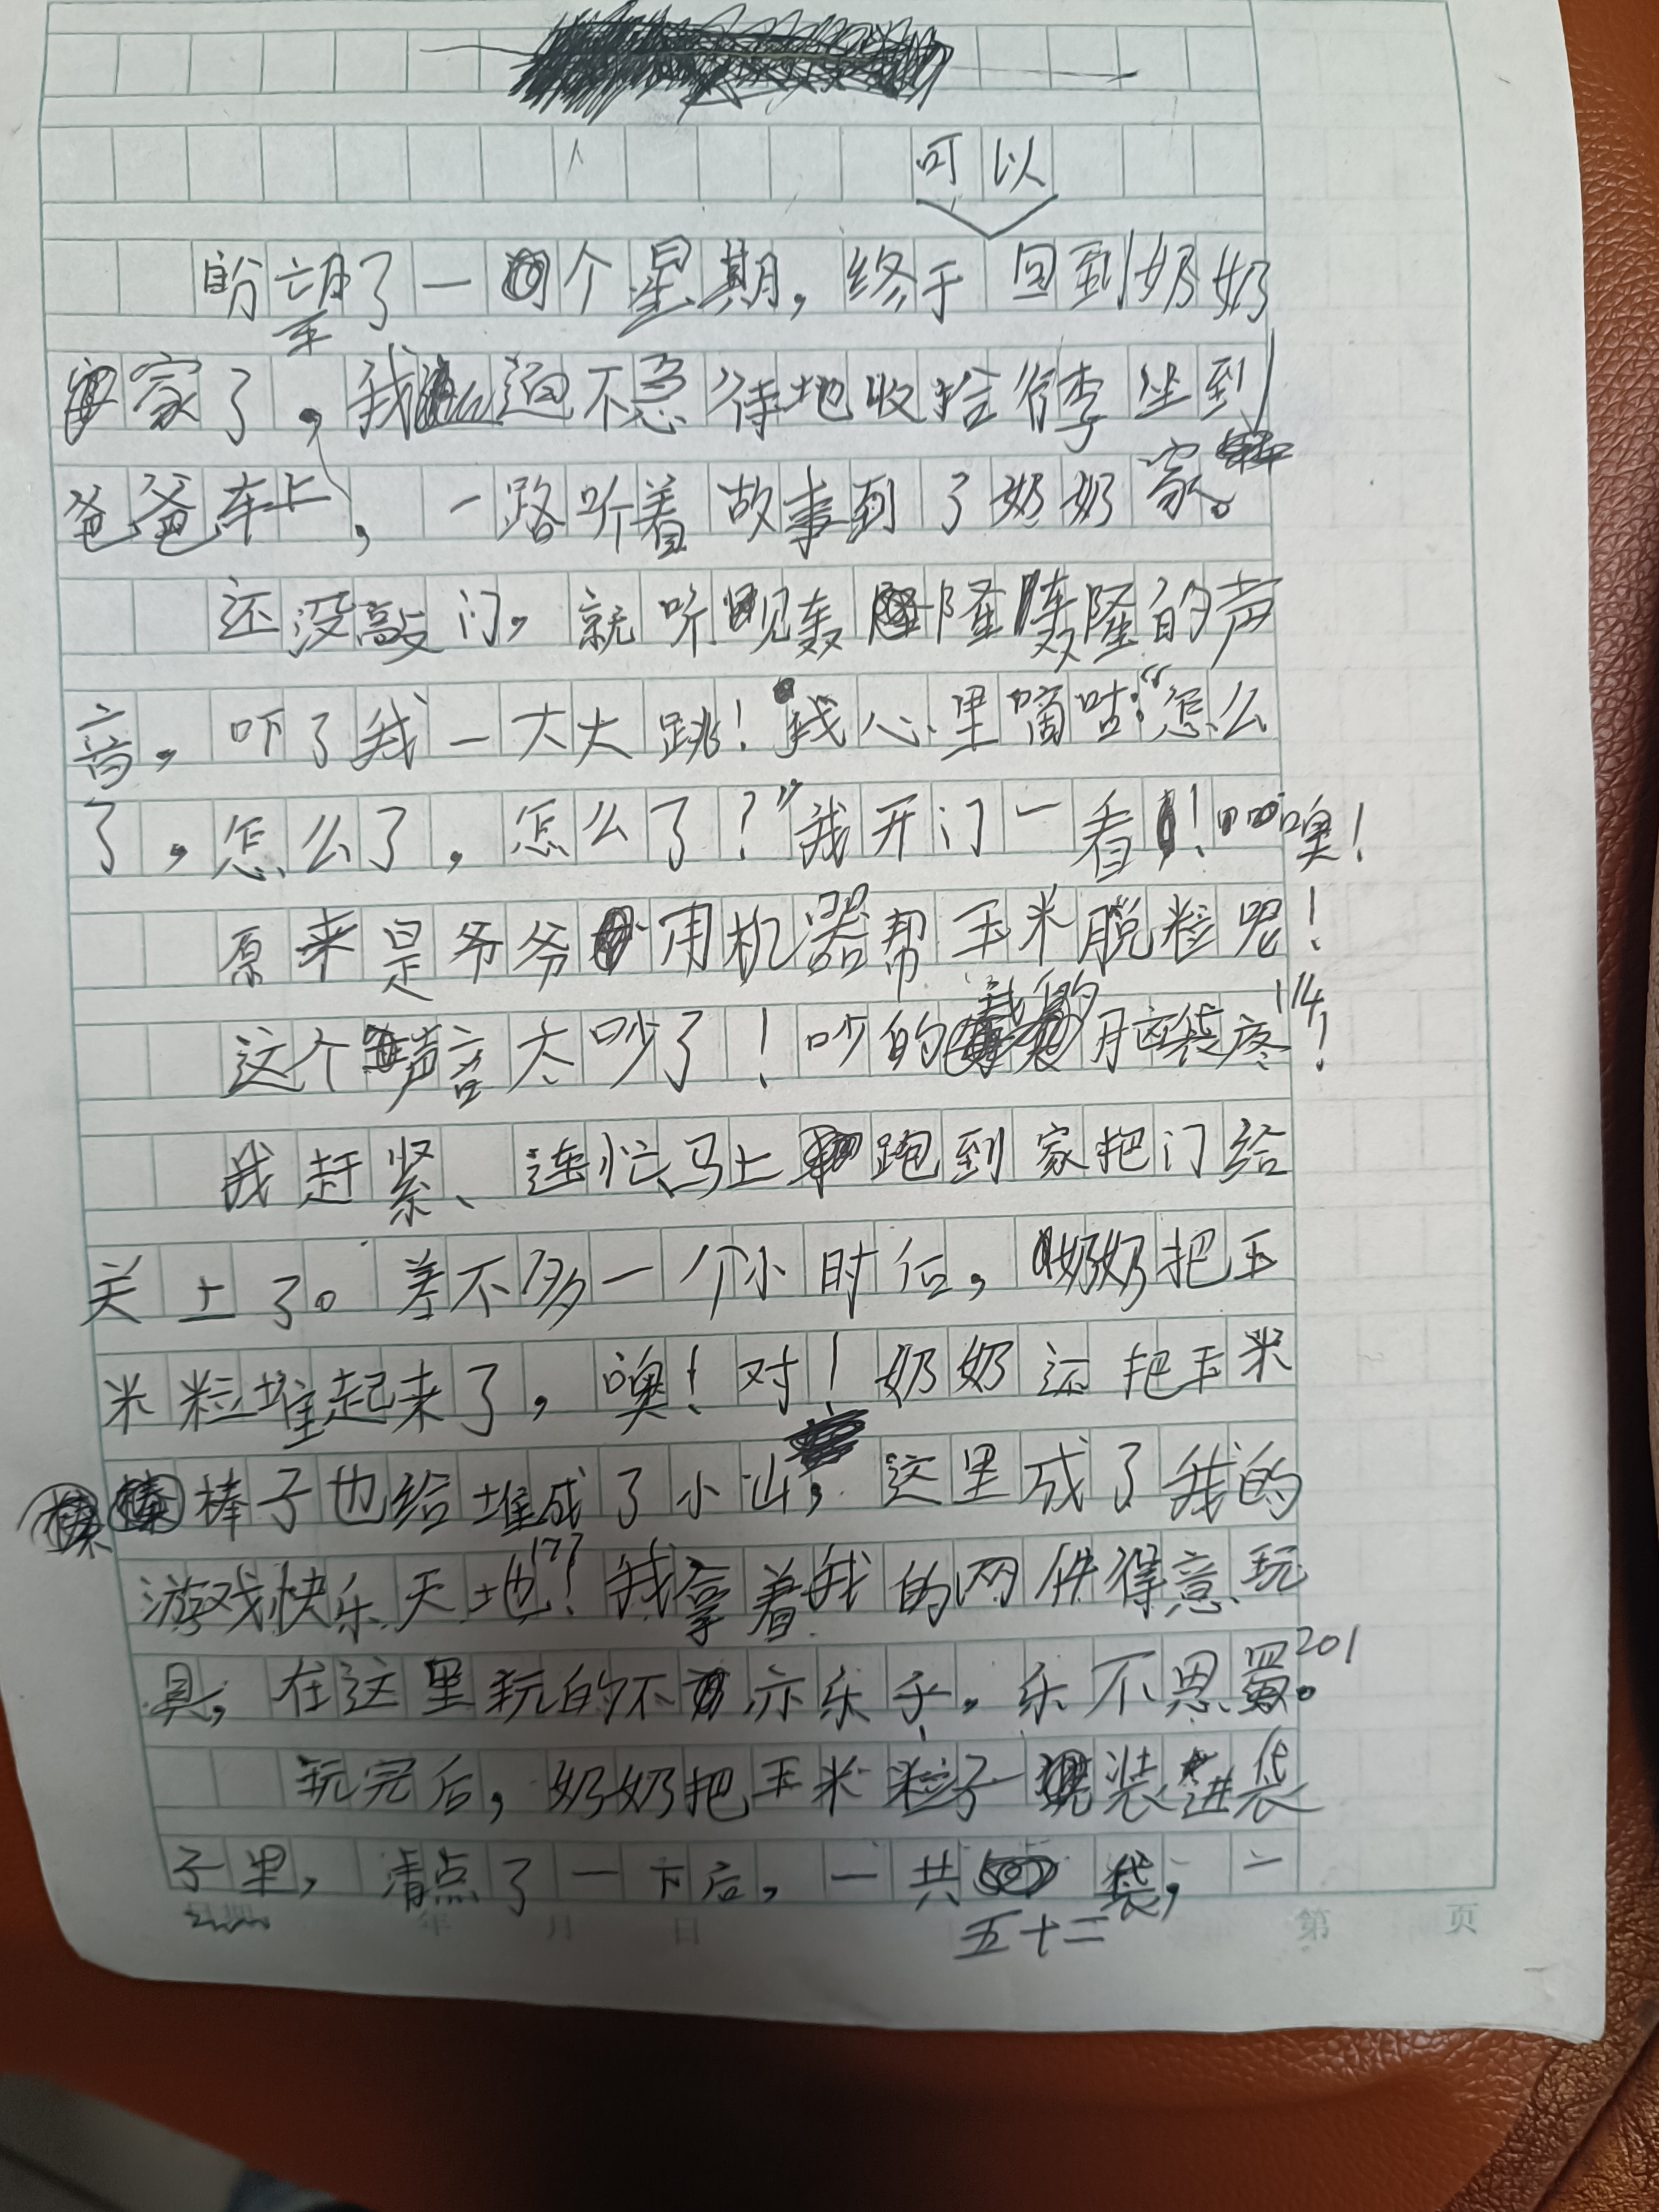 可以
盼望了一个星期，终于回到奶奶
家了，我迫不急待地收拾行李坐到
爸爸车上，一路听着故事到了奶奶家。
还没敲门，就听见轰隆轰隆的声
音，吓了我一大大跳！我心里嘀咕：“怎么
了，怎么了，怎么了？”我开门一看！噢！
原来是爷爷用机器帮玉米脱粒呢！
这个声音太吵了！吵的我的脑袋疼！
114
我赶紧、连忙、马上跑到家把门给
关上了。差不多一个小时后，奶奶把玉
米粒堆起来了，噢！对！奶奶还把玉米
棒子也给堆成了小山，这里成了我的
游戏快乐天地！我拿着我的两件得意玩
177
具，在这里玩的不亦乐乎，乐不思蜀。
201
玩完后，奶奶把玉米粒子装进袋
子里，清点了一下后，一共五十二袋，一
年 月 日 第 页